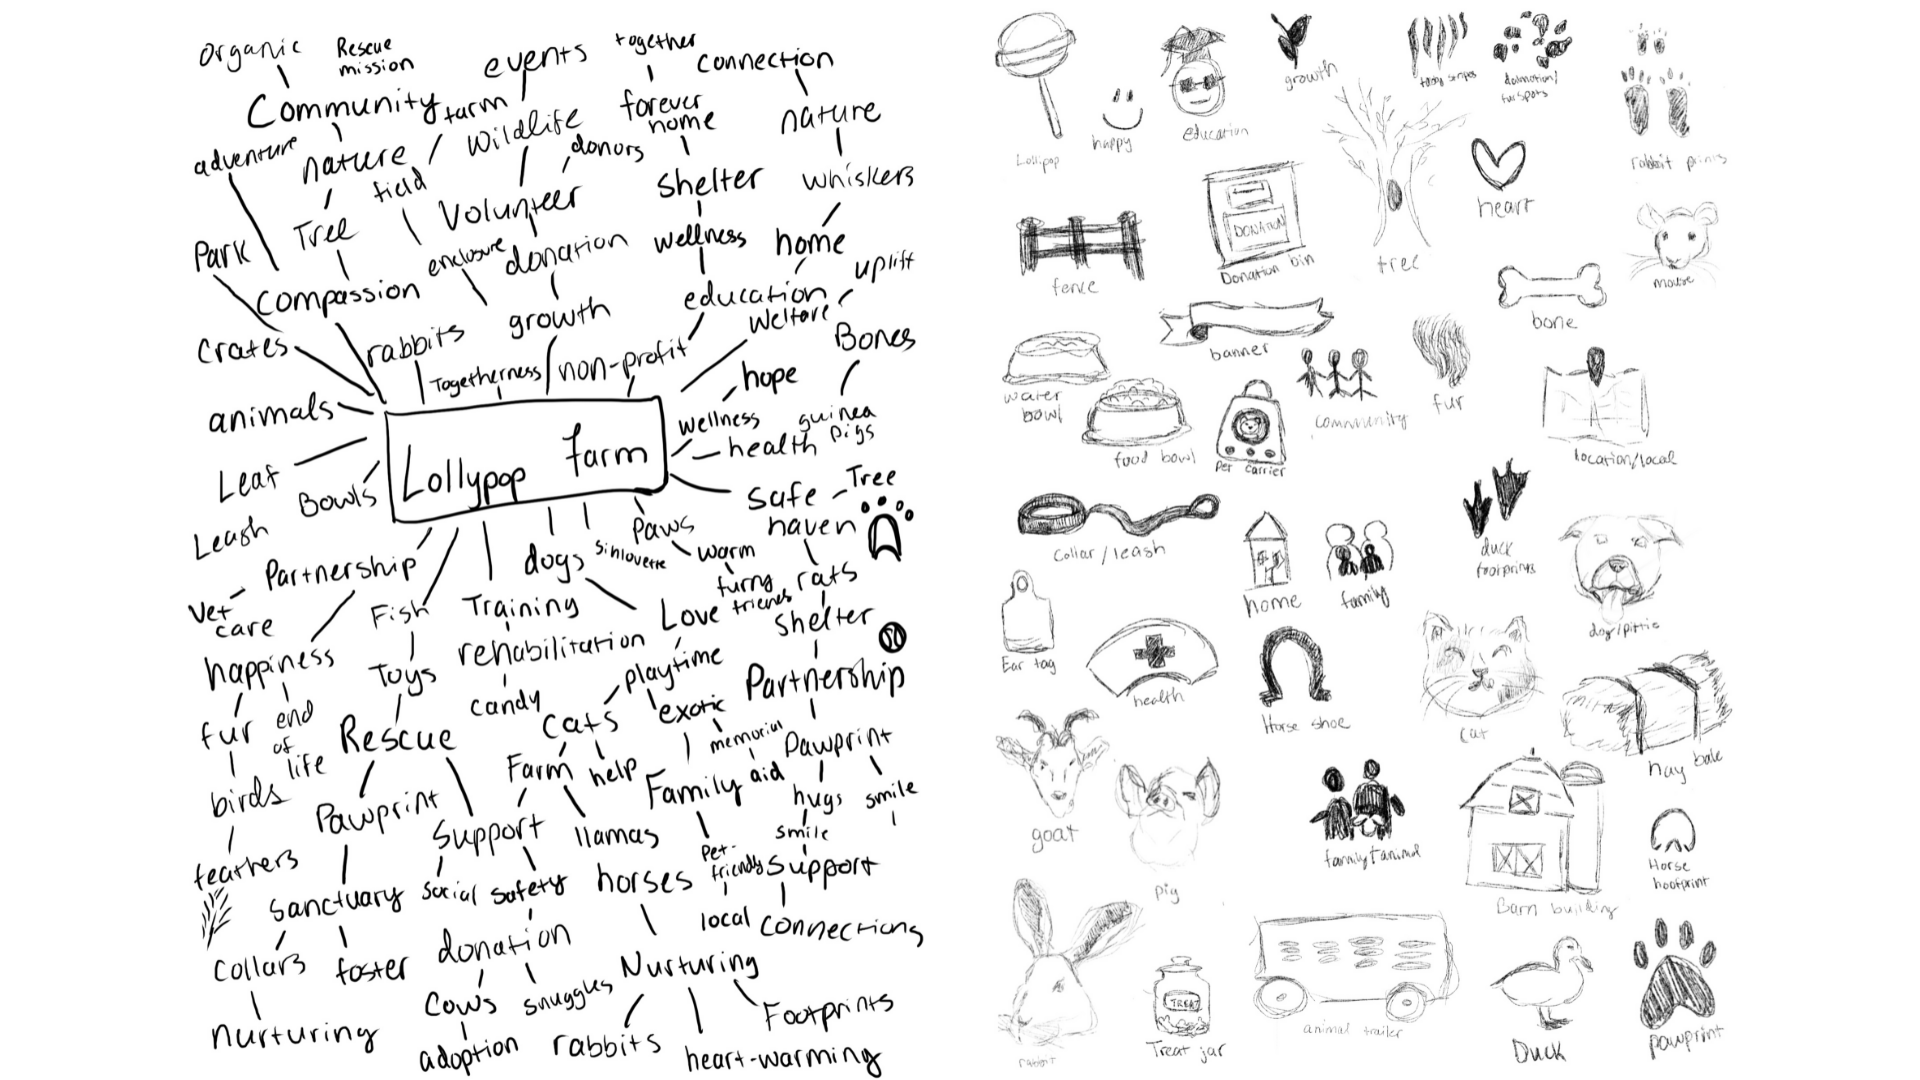 organic
Rescue
mission
events
together
connection
Community
farm
Wildlife
forever
home
nature
adventure
nature
field
donors
Shelter
whiskers
Park
Tree
Volunteer
enclosure
donation
wellness
home
uplift
Compassion
growth
education
Welfare
Crates
rabbits
Togetherness
non-profit
Bones
hope
animals
wellness
guinea
pigs
health
Lollypop Farm
Leaf
Bowls
Safe
haven
Tree
Leash
Paws
Partnership
dogs
Sihlouette
warm
furry
friends
rats
Vet
care
Fish
Training
Love
Shelter
happiness
Toys
rehabilitation
playtime
Partnership
candy
fur
end
of
life
Rescue
cats
exotic
memorial
Pawprint
birds
Farm
help
Family
aid
hugs
smile
Pawprint
Support
llamas
smile
feathers
Pet-
friendly
support
sanctuary
social
safety
horses
local
connections
collars
foster
donation
Nurturing
cows
snuggles
Footprints
nurturing
adoption
rabbits
heart-warming
Lollipop
happy
education
growth
tabby stripes
dalmation/
fur spots
rabbit prints
fence
DONATION
Donation bin
tree
heart
mouse
banner
bone
water
bowl
food bowl
Pet carrier
community
fur
location/local
Collar/leash
home
family
duck
footprints
dog/pittie
Ear tag
health
Horse shoe
cat
hay bale
goat
pig
family+animal
Barn building
Horse
hoofprint
rabbit
TREAT
Treat jar
animal trailer
Duck
pawprint